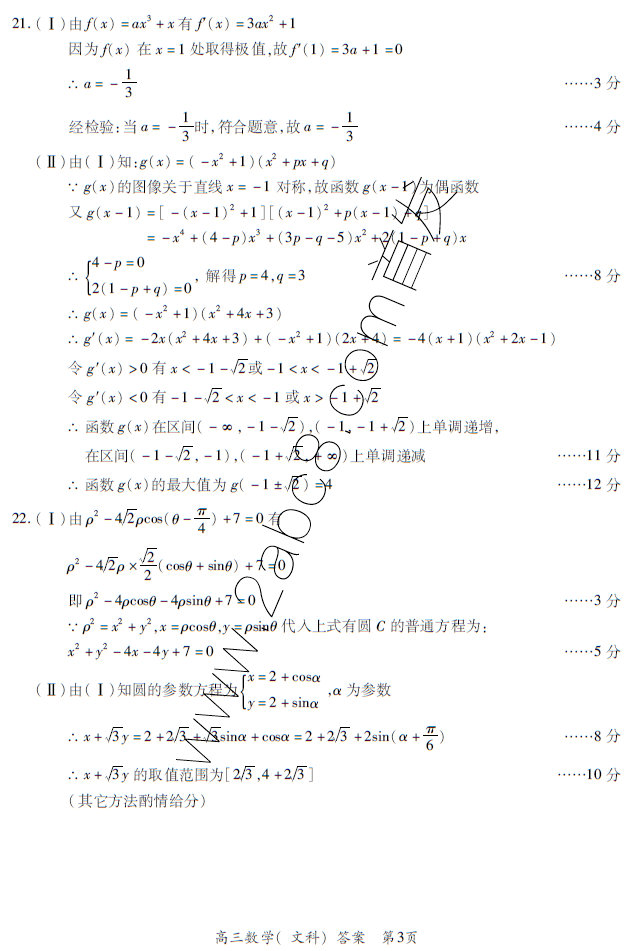 21. (Ⅰ)由 f(x) = ax³ + x 有 f′(x) = 3ax² + 1
因为 f(x) 在 x = 1 处取得极值,故 f′(1) = 3a + 1 = 0
∴ a = -1/3 ……3 分
经检验:当 a = -1/3 时,符合题意,故 a = -1/3 ……4 分
(Ⅱ)由(Ⅰ)知:g(x) = (-x² + 1)(x² + px + q)
∵ g(x)的图像关于直线 x = -1 对称,故函数 g(x-1)为偶函数
又 g(x-1) = [-(x-1)² + 1][(x-1)² + p(x-1) + q]
= -x⁴ + (4-p)x³ + (3p-q-5)x² + 2(1-p+q)x
∴ { 4-p = 0
2(1-p+q) = 0 , 解得 p = 4, q = 3 ……8 分
∴ g(x) = (-x² + 1)(x² + 4x + 3)
∴ g′(x) = -2x(x² + 4x + 3) + (-x² + 1)(2x + 4) = -4(x+1)(x² + 2x - 1)
令 g′(x) > 0 有 x < -1-√2 或 -1 < x < -1+√2
令 g′(x) < 0 有 -1-√2 < x < -1 或 x > -1+√2
∴ 函数 g(x)在区间(-∞, -1-√2),(-1, -1+√2)上单调递增,
在区间(-1-√2, -1),(-1+√2, +∞)上单调递减 ……11 分
∴ 函数 g(x)的最大值为 g(-1±√2) = 4 ……12 分
22. (Ⅰ)由 ρ² - 4√2ρcos(θ - π/4) + 7 = 0 有
ρ² - 4√2ρ × √2/2(cosθ + sinθ) + 7 = 0
即 ρ² - 4ρcosθ - 4ρsinθ + 7 = 0 ……3 分
∵ ρ² = x² + y², x = ρcosθ, y = ρsinθ 代入上式有圆 C 的普通方程为:
x² + y² - 4x - 4y + 7 = 0 ……5 分
(Ⅱ)由(Ⅰ)知圆的参数方程为 { x = 2 + cosα
y = 2 + sinα , α 为参数
∴ x + √3y = 2 + 2√3 + √3sinα + cosα = 2 + 2√3 + 2sin(α + π/6) ……8 分
∴ x + √3y 的取值范围为[2√3, 4 + 2√3] ……10 分
(其它方法酌情给分)
高三数学(文科)答案 第3页